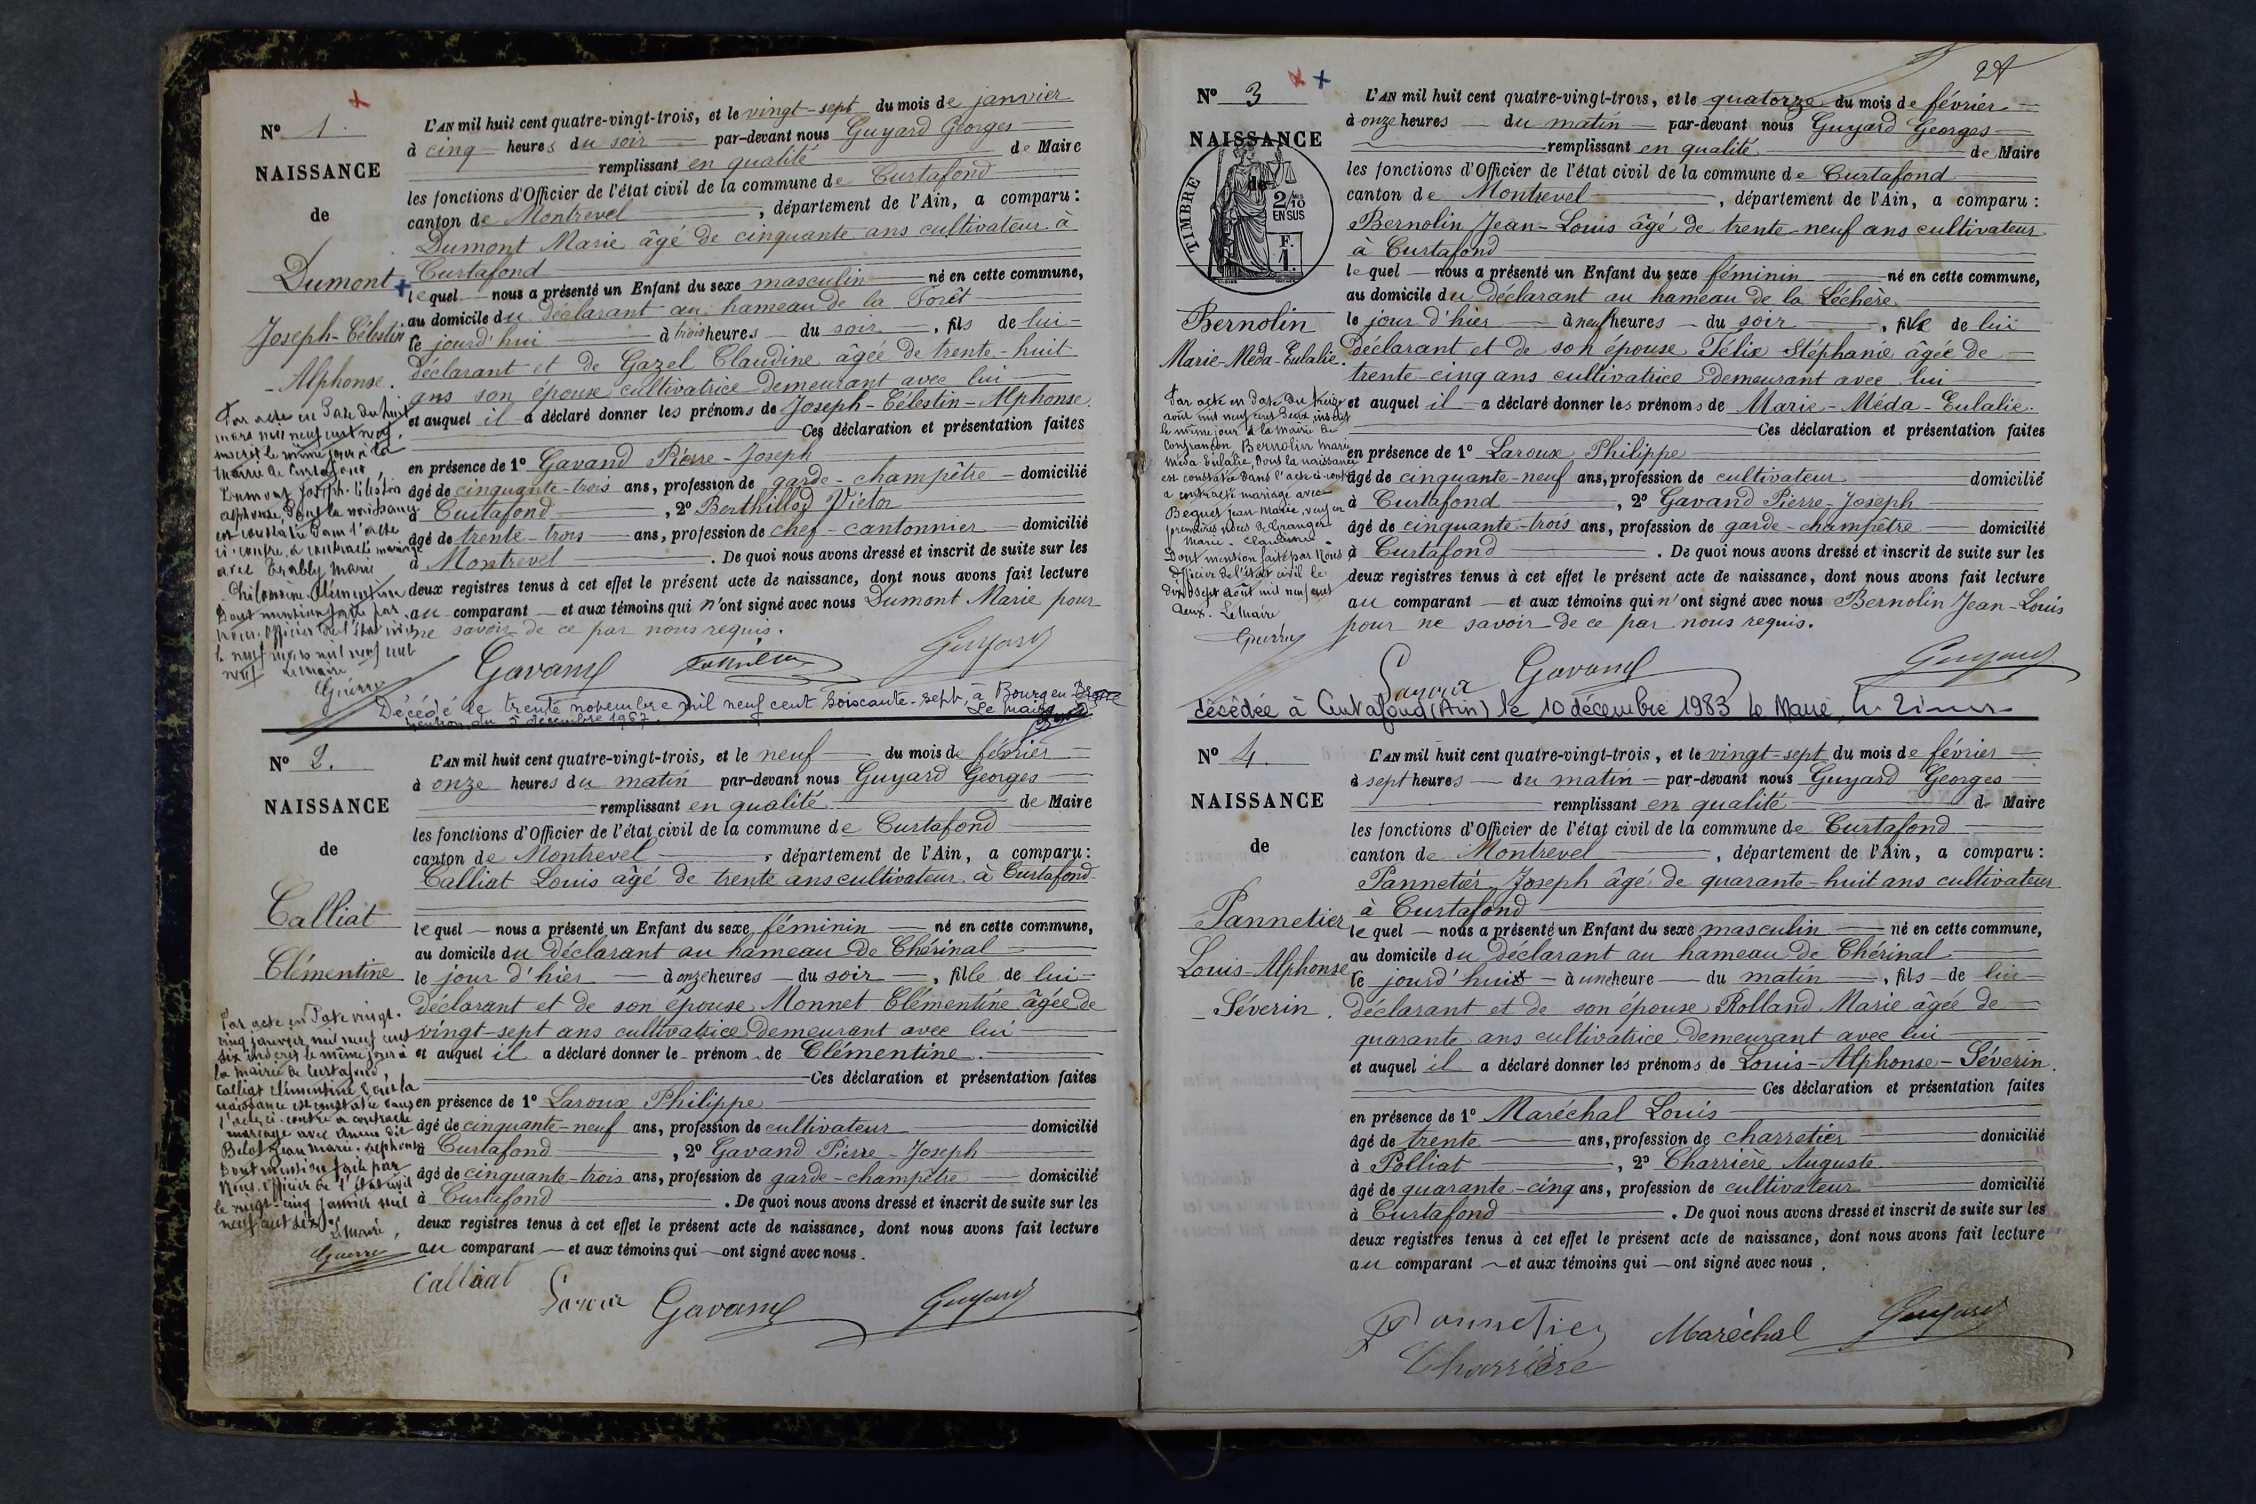 N° 1.
NAISSANCE
de
Dumont
Joseph-Célestin
-Alphonse.
L'AN mil huit cent quatre-vingt-trois, et le vingt-sept du mois de janvier
à cinq heures du soir par-devant nous Guyard Georges
remplissant en qualité de Maire
les fonctions d'Officier de l'état civil de la commune de Curtafond
canton de Montrevel, département de l'Ain, a comparu :
Dumont Marie âgé de cinquante ans cultivateur à
Curtafond
lequel nous a présenté un Enfant du sexe masculin né en cette commune,
au domicile du déclarant au hameau de la Forêt
le jourd'hui à trois heures du soir, fils de lui
déclarant et de Gazel Claudine âgée de trente-huit
ans son épouse cultivatrice demeurant avec lui
et auquel il a déclaré donner les prénoms de Joseph-Célestin-Alphonse.
Ces déclaration et présentation faites
en présence de 1° Gavand Pierre-Joseph
âgé de cinquante-trois ans, profession de garde-champêtre domicilié
à Curtafond, 2° Berthillod Victor
âgé de trente-trois ans, profession de chef-cantonnier domicilié
à Montrevel. De quoi nous avons dressé et inscrit de suite sur les
deux registres tenus à cet effet le présent acte de naissance, dont nous avons fait lecture
au comparant et aux témoins qui n'ont signé avec nous Dumont Marie pour
ne savoir de ce par nous requis.
Gavand Guyard
Par acte en date du huit
mars mil neuf cent neuf,
inscrit le même jour à la
mairie de Curtafond,
Dumont Joseph-Célestin
Alphonse, dont la naissance
est constatée dans l'acte
ci-contre, a contracté mariage
avec Marie
Philomène Clémentine
Dont mention faite par
nous, Officier de l'état civil
le neuf mars mil neuf cent
neuf Le Maire
Guerry
Décédé le trente novembre mil neuf cent soixante-sept, à Bourg en Bresse
mention du 5 décembre 1967. Le Maire
N° 2.
NAISSANCE
de
Calliat
Clémentine
L'AN mil huit cent quatre-vingt-trois, et le neuf du mois de février
à onze heures du matin par-devant nous Guyard Georges
remplissant en qualité de Maire
les fonctions d'Officier de l'état civil de la commune de Curtafond
canton de Montrevel, département de l'Ain, a comparu :
Calliat Louis âgé de trente ans cultivateur à Curtafond
lequel nous a présenté un Enfant du sexe féminin né en cette commune,
au domicile du déclarant au hameau de Chérinal
le jour d'hier à onze heures du soir, fille de lui
déclarant et de son épouse Monnet Clémentine âgée de
vingt-sept ans cultivatrice demeurant avec lui
et auquel il a déclaré donner le prénom de Clémentine.
Ces déclaration et présentation faites
en présence de 1° Laroux Philippe
âgé de cinquante-neuf ans, profession de cultivateur domicilié
à Curtafond, 2° Gavand Pierre-Joseph
âgé de cinquante-trois ans, profession de garde-champêtre domicilié
à Curtafond. De quoi nous avons dressé et inscrit de suite sur les
deux registres tenus à cet effet le présent acte de naissance, dont nous avons fait lecture
au comparant et aux témoins qui ont signé avec nous.
Calliat Laroux Gavand Guyard
Par acte en date vingt-
cinq janvier mil neuf cent
six inscrit le même jour à
la mairie de Curtafond,
Calliat Clémentine dont la
naissance est constatée dans
l'acte ci-contre a contracté
mariage avec dit
Belot Jean Marie Alphonse
Dont mention faite par
Nous Officier de l'état civil
le vingt-cinq janvier mil
neuf cent six.
Le Maire,
Guerry
24
N° 3
NAISSANCE
de
TIMBRE
2/10
EN SUS
F.
1.
Bernolin
Marie-Méda-Eulalie.
L'AN mil huit cent quatre-vingt-trois, et le quatorze du mois de février
à onze heures du matin par-devant nous Guyard Georges
remplissant en qualité de Maire
les fonctions d'Officier de l'état civil de la commune de Curtafond
canton de Montrevel, département de l'Ain, a comparu :
Bernolin Jean-Louis âgé de trente-neuf ans cultivateur
à Curtafond
lequel nous a présenté un Enfant du sexe féminin né en cette commune,
au domicile du déclarant au hameau de la Léchère
le jour d'hier à neuf heures du soir, fille de lui
déclarant et de son épouse Félix Stéphanie âgée de
trente-cinq ans cultivatrice demeurant avec lui
et auquel il a déclaré donner les prénoms de Marie-Méda-Eulalie.
Ces déclaration et présentation faites
en présence de 1° Laroux Philippe
âgé de cinquante-neuf ans, profession de cultivateur domicilié
à Curtafond, 2° Gavand Pierre-Joseph
âgé de cinquante-trois ans, profession de garde-champêtre domicilié
à Curtafond. De quoi nous avons dressé et inscrit de suite sur les
deux registres tenus à cet effet le présent acte de naissance, dont nous avons fait lecture
au comparant et aux témoins qui n'ont signé avec nous Bernolin Jean-Louis
pour ne savoir de ce par nous requis.
Laroux Gavand Guyard
Par acte en date du treize
août mil neuf cent deux inscrit
le même jour à la mairie de
Confrançon Bernolin Marie
Méda Eulalie, dont la naissance
est constatée dans l'acte ci-contre
a contracté mariage avec
Beguet Jean Marie, veuf en
premières noces de Granger
Marie-Claudine
Dont mention faite par Nous
Officier de l'état civil le
dix sept août mil neuf cent
deux. Le Maire
Guerry
décédée à Curtafond (Ain) le 10 décembre 1983 le Maire
N° 4.
NAISSANCE
de
Pannetier
Louis-Alphonse
-Séverin.
L'AN mil huit cent quatre-vingt-trois, et le vingt-sept du mois de février
à sept heures du matin par-devant nous Guyard Georges
remplissant en qualité de Maire
les fonctions d'Officier de l'état civil de la commune de Curtafond
canton de Montrevel, département de l'Ain, a comparu :
Pannetier Joseph âgé de quarante-huit ans cultivateur
à Curtafond
lequel nous a présenté un Enfant du sexe masculin né en cette commune,
au domicile du déclarant au hameau de Chérinal
le jourd'hui à une heure du matin, fils de lui
déclarant et de son épouse Rolland Marie âgée de
quarante ans cultivatrice demeurant avec lui
et auquel il a déclaré donner les prénoms de Louis-Alphonse-Séverin.
Ces déclaration et présentation faites
en présence de 1° Maréchal Louis
âgé de trente ans, profession de charretier domicilié
à Polliat, 2° Charrière Auguste
âgé de quarante-cinq ans, profession de cultivateur domicilié
à Curtafond. De quoi nous avons dressé et inscrit de suite sur les
deux registres tenus à cet effet le présent acte de naissance, dont nous avons fait lecture
au comparant et aux témoins qui ont signé avec nous.
Pannetier Maréchal Guyard
Charrière